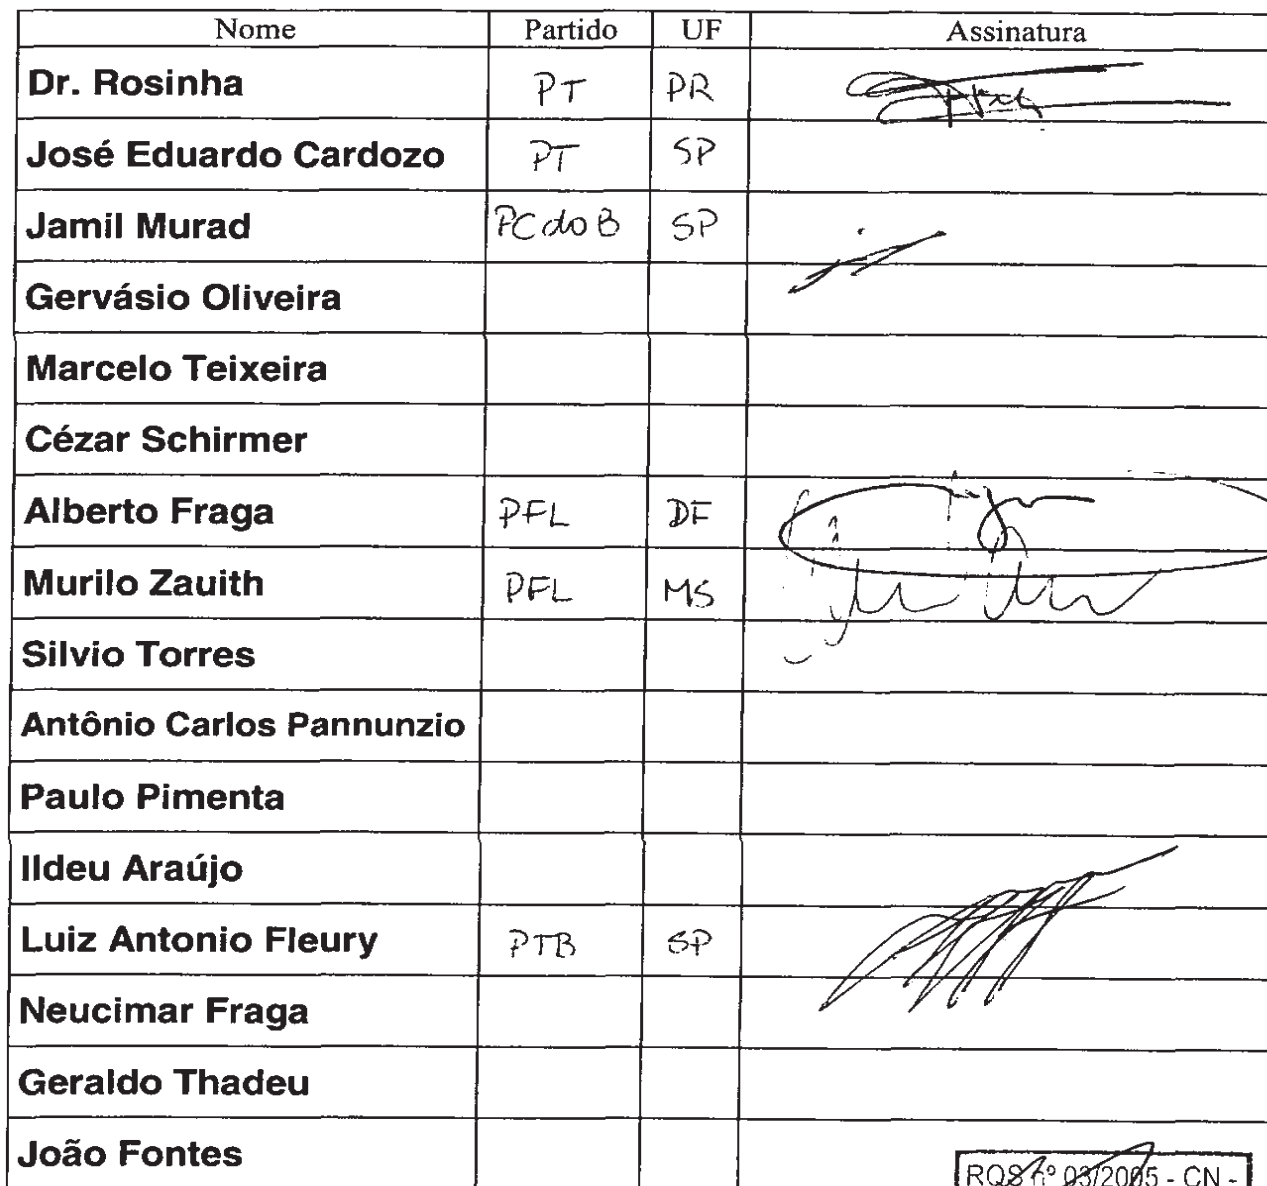 Nome Partido UF Assinatura
Dr. Rosinha PT PR
José Eduardo Cardozo PT SP
Jamil Murad PCdoB SP
Gervásio Oliveira
Marcelo Teixeira
Cézar Schirmer
Alberto Fraga PFL DF
Murilo Zauith PFL MS
Silvio Torres
Antônio Carlos Pannunzio
Paulo Pimenta
Ildeu Araújo
Luiz Antonio Fleury PTB SP
Neucimar Fraga
Geraldo Thadeu
João Fontes
RQS nº 03/2005 - CN -